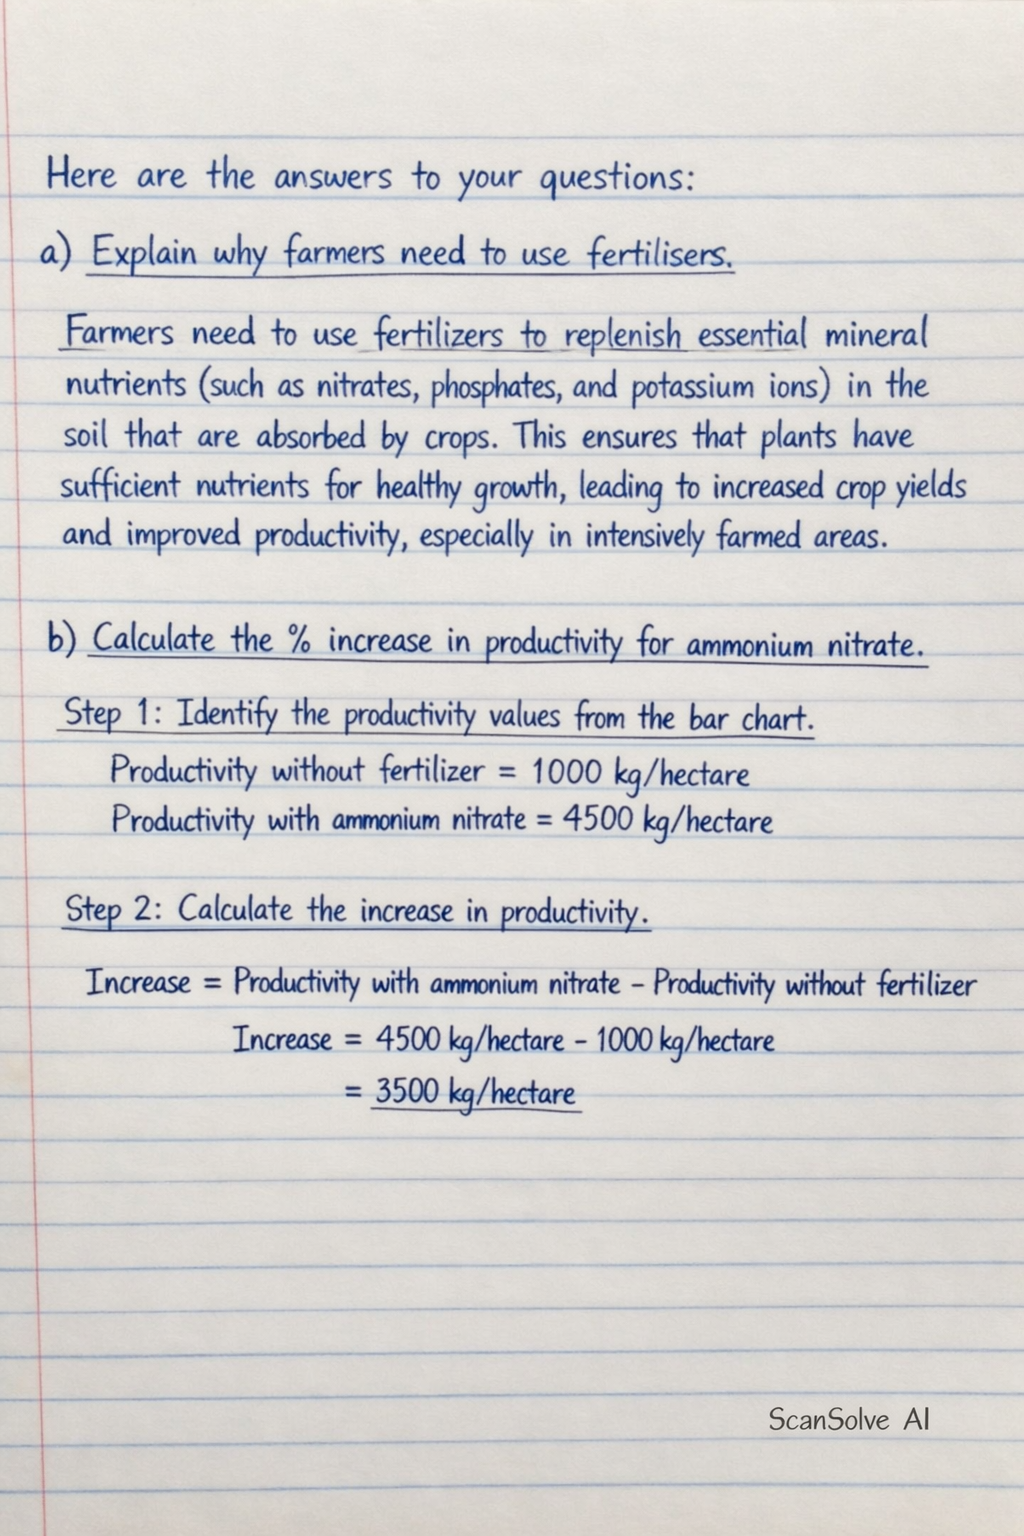 Here are the answers to your questions:
a) Explain why farmers need to use fertilisers.
Farmers need to use fertilizers to replenish essential mineral
nutrients (such as nitrates, phosphates, and potassium ions) in the
soil that are absorbed by crops. This ensures that plants have
sufficient nutrients for healthy growth, leading to increased crop yields
and improved productivity, especially in intensively farmed areas.
b) Calculate the % increase in productivity for ammonium nitrate.
Step 1: Identify the productivity values from the bar chart.
Productivity without fertilizer = 1000 kg/hectare
Productivity with ammonium nitrate = 4500 kg/hectare
Step 2: Calculate the increase in productivity.
Increase = Productivity with ammonium nitrate - Productivity without fertilizer
Increase = 4500 kg/hectare - 1000 kg/hectare
= 3500 kg/hectare
ScanSolve AI